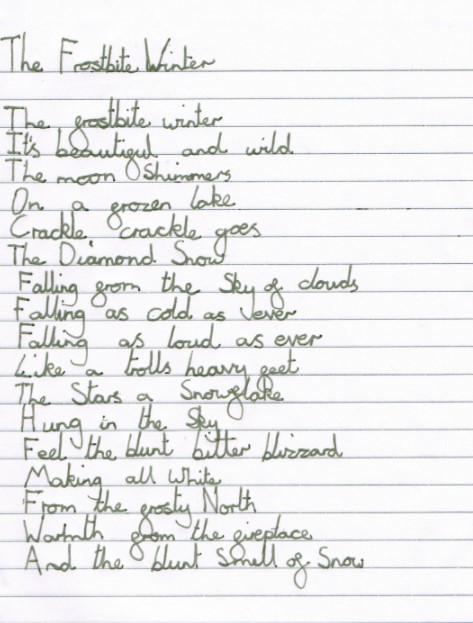 The Frostbite Winter
The frostbite winter
It's beautiful and wild
The moon shimmers
On a frozen lake
Crackle crackle goes
The Diamond Snow
Falling from the Sky of clouds
Falling as cold as ever
Falling as loud as ever
Like a trolls heavy feet
The Stars a Snowflake
Hung in the Sky
Feel the blunt bitter blizzard
Making all White
From the frosty North
Warmth from the fireplace
And the blunt Smell of Snow